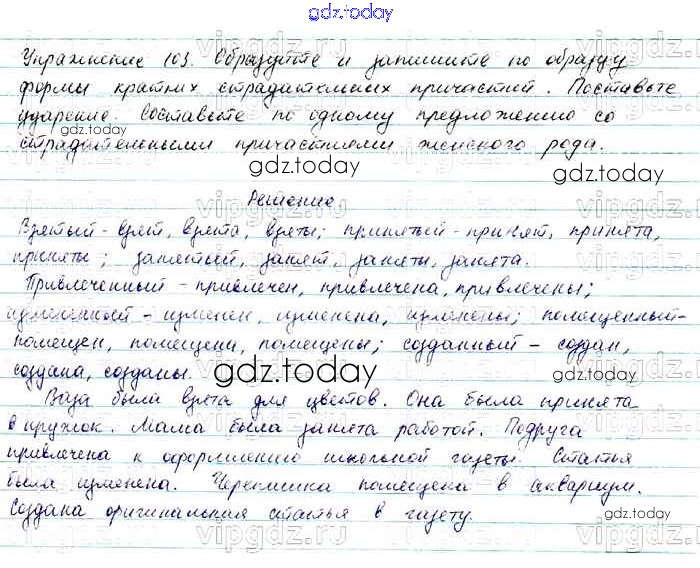 gdz.today
Упражнение 103. Образуйте и запишите по образцу
формы кратких страдательных причастий. Поставьте
ударение. Составьте по одному предложению со
gdz.today
страдательными причастиями женского рода.
gdz.today
gdz.today
Решение
Взятый - взят, взята, взяты; принятый - принят, принята,
приняты; занятый, занят, заняты, занята.
Привлеченный - привлечен, привлечена, привлечены;
измененный - изменен, изменена, изменены; помещенный-
помещен, помещена, помещены; созданный - создан,
создана, созданы.
gdz.today
Ваза была взята для цветов. Она была принята
в кружок. Мама была занята работой. Подруга
привлечена к оформлению школьной газеты. Статья
была изменена. Черепашка помещена в аквариум.
gdz.today
Создана оригинальная статья в газету.